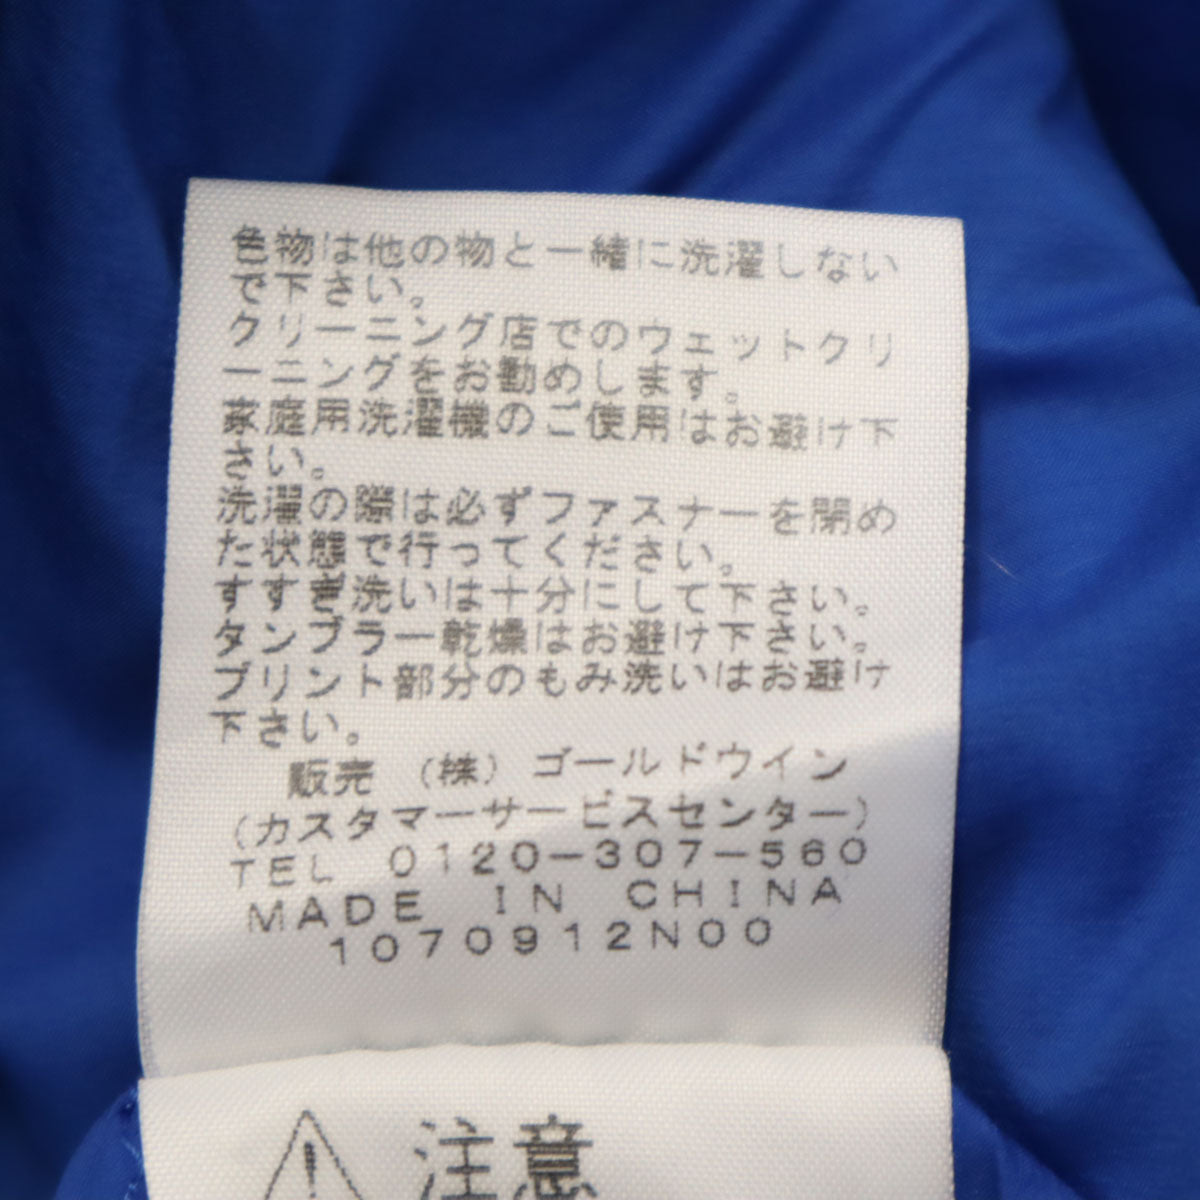 色物は他の物と一緒に洗濯しない
で下さい。
クリーニング店でのウェットクリ
ーニングをお勧めします。
家庭用洗濯機のご使用はお避け下
さい。
洗濯の際は必ずファスナーを閉め
た状態で行ってください。
すすぎ洗いは十分にして下さい。
タンブラー乾燥はお避け下さい。
プリント部分のもみ洗いはお避け
下さい。
販売 (株) ゴールドウイン
(カスタマーサービスセンター)
TEL 0120-307-560
MADE IN CHINA
1070912N00
注意